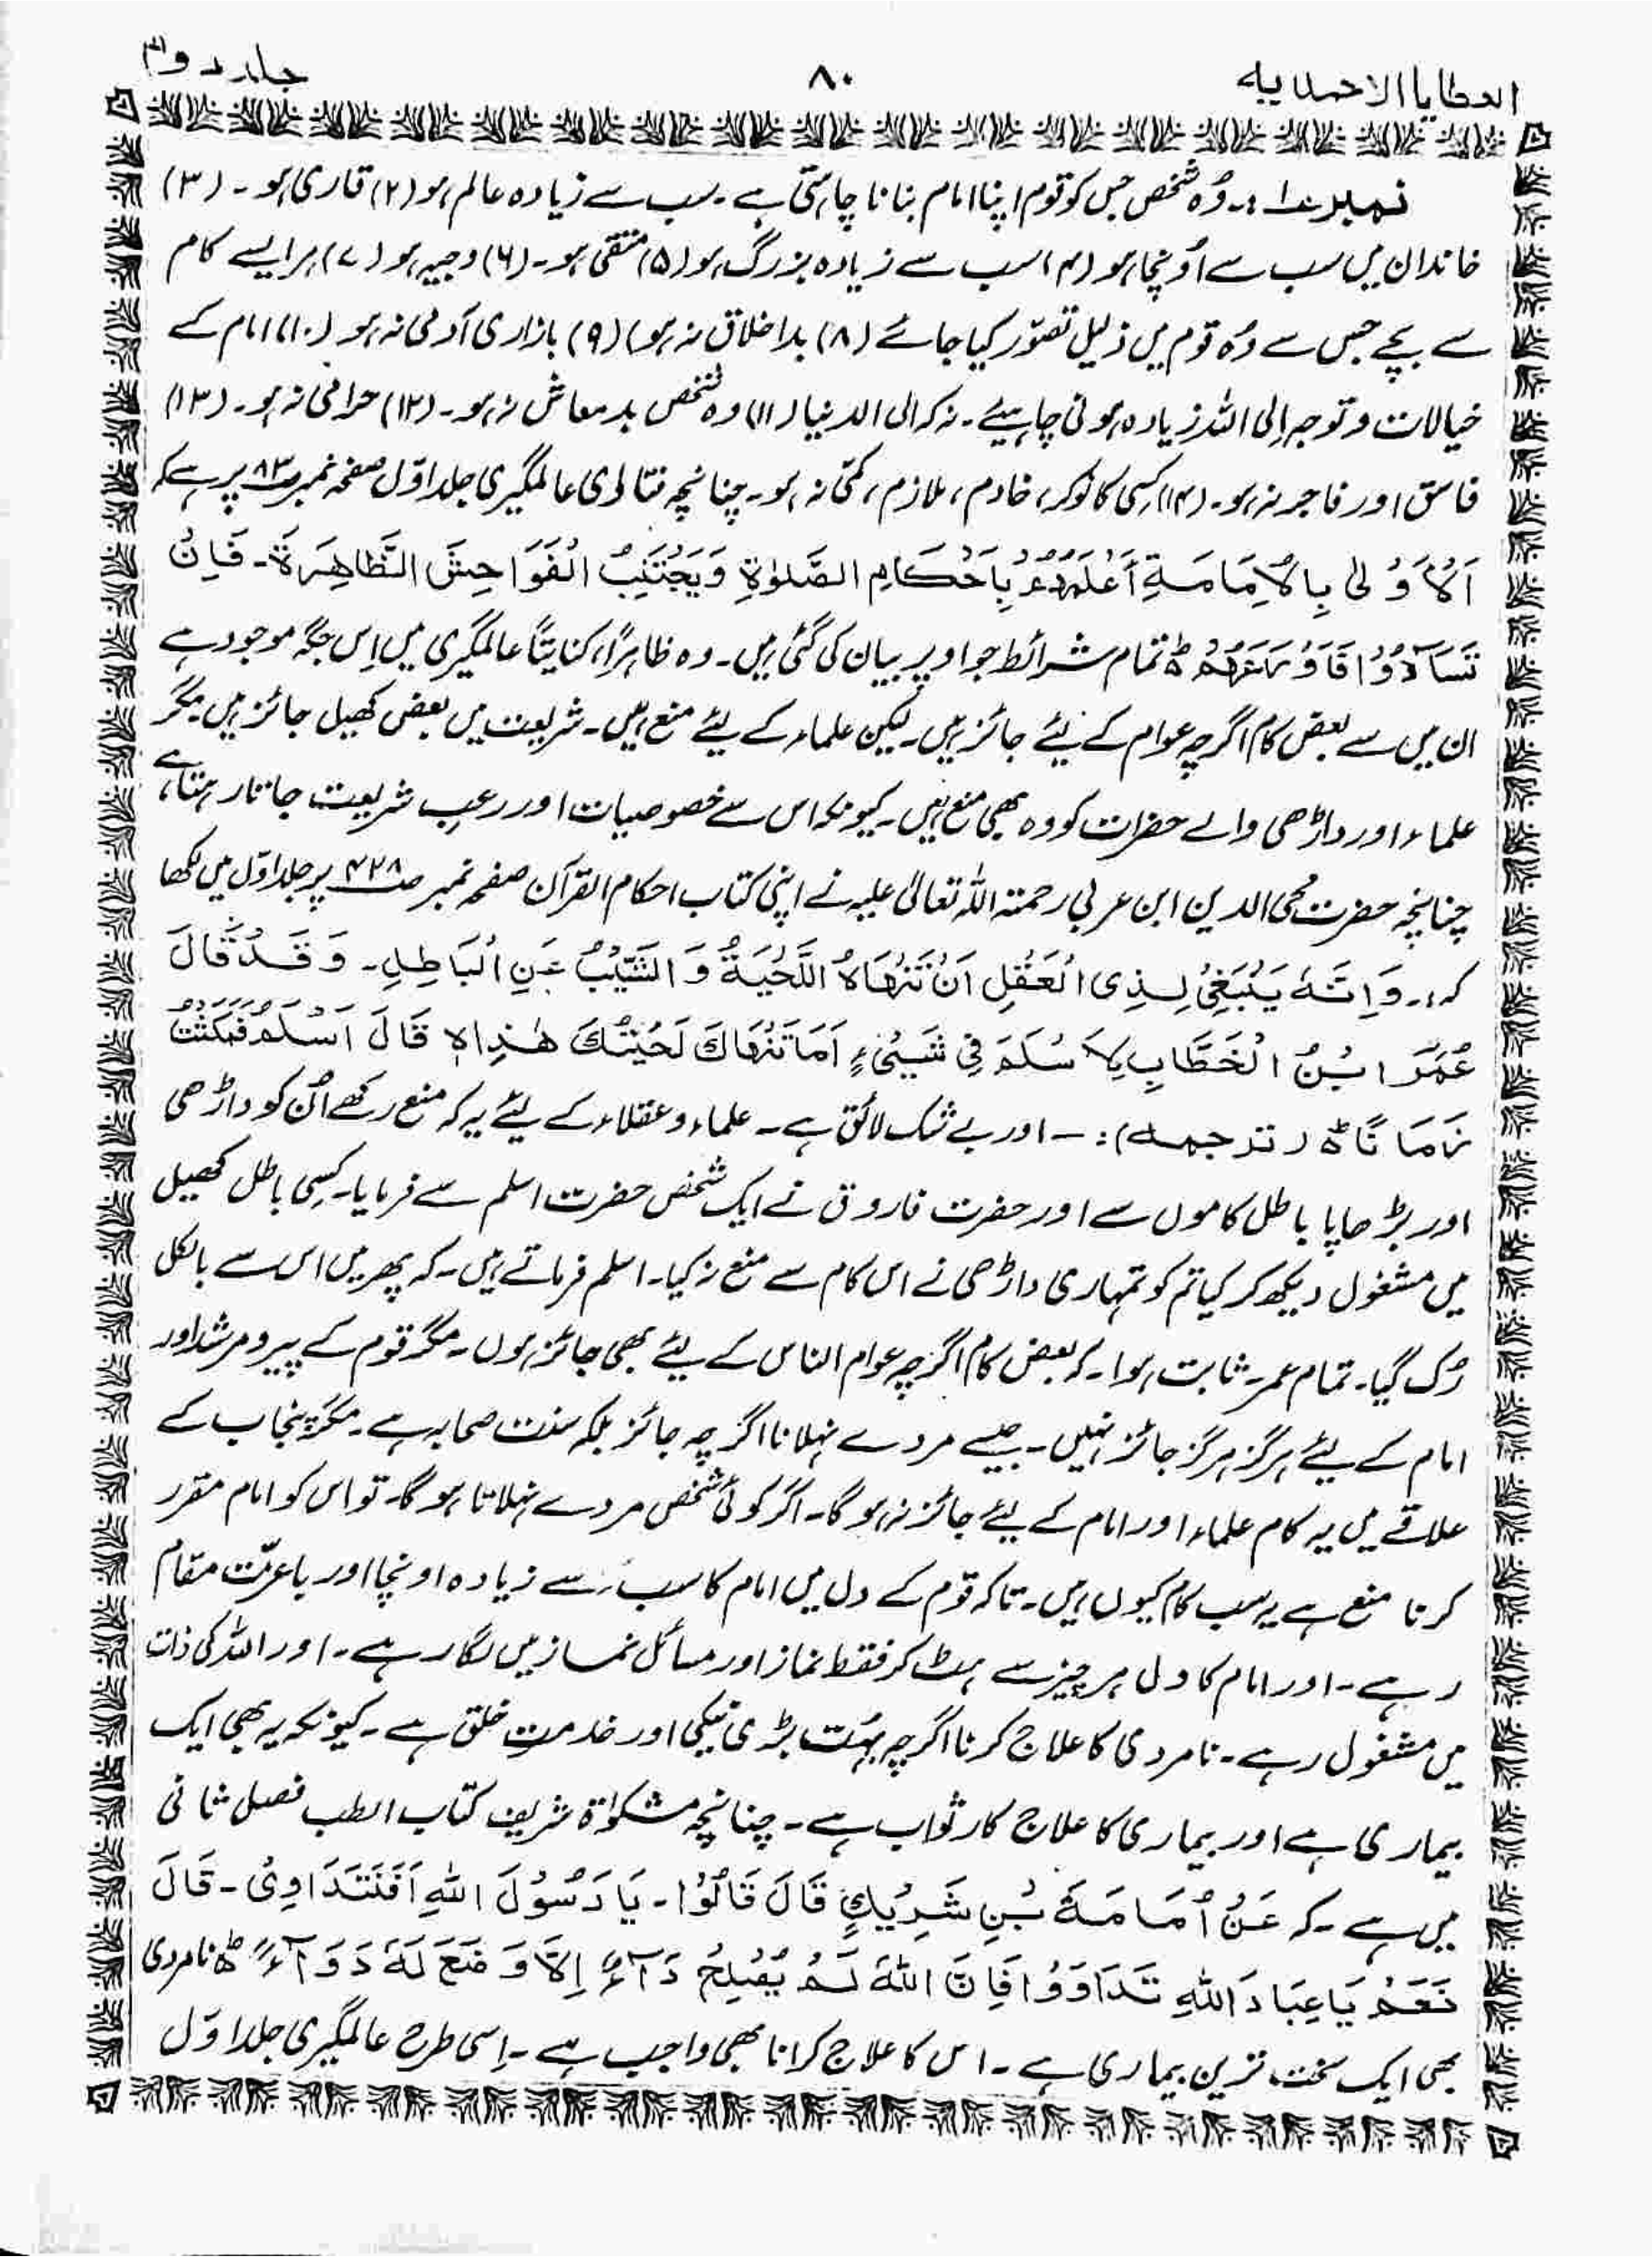 العطایا الاحمدیہ
۸۰
جلد دوم
نمبر ۱: وُہ شخص جس کو قوم اپنا امام بنانا چاہتی ہے۔ سب سے زیادہ عالم ہو (۲) قاری ہو۔ (۳)
خاندان میں سب سے اُونچا ہو (۴) سب سے زیادہ بزرگ ہو (۵) متقی ہو۔ (۶) وجیہہ ہو (۷) ہر ایسے کام
سے بچے جس سے وُہ قوم میں ذلیل تصوّر کیا جائے (۸) بداخلاق نہ ہو) (۹) بازاری آدمی نہ ہو (۱۰) امام کے
خیالات و توجہ اِلی اللہ زیادہ ہونی چاہیئے۔ نہ کہ الی الدنیا (۱۱) وہ شخص بدمعاش نہ ہو۔ (۱۲) حرامی نہ ہو۔ (۱۳)
فاسق اور فاجر نہ ہو۔ (۱۴) کِسی کا نوکر، خادم، ملازم، کمّی نہ ہو۔ چنانچہ فتاوٰی عالمگیری جلد اوّل صفحہ نمبر ۸۳ پر ہے کہ
اَلْاَوْلٰی بِالْاِمَامَةِ اَعْلَمُهُمْ بِاَحْكَامِ الصَّلوٰةِ وَيَجْتَنِبُ الْفَوَاحِشَ الظَّاهِرَةَ۔ فَاِنْ
تَسَآوَوْا فَاَوْرَعُهُمْ ط تمام شرائط جو اوپر بیان کی گئی ہیں۔ وہ ظاہراً، کنایتاً عالمگیری میں اِس جگہ موجود ہے
ان میں سے بعض کام اگرچہ عوام کے لئے جائز ہیں۔ لیکن علماء کے لیئے منع ہیں۔ شریعت میں بعض کھیل جائز ہیں مگر
علماء اور داڑھی والے حضرات کو وہ بھی منع ہیں۔ کیونکہ اس سے خصوصیات اور رعب شریعت جاتا رہتا ہے،
چنانچہ حضرت محی الدین ابن عربی رحمتہ اللہ تعالیٰ علیہ نے اپنی کتاب احکام القرآن صفحہ نمبر ۴۲۸ پر جلد اوّل میں لکھا
کہ:۔ وَاِنَّهٗ يَنْبَغِيْ لِذِی الْعَقْلِ اَنْ تَنْهَاهُ اللَّحْيَةُ وَالشَّيْبُ عَنِ الْبَاطِلِ۔ وَقَدْ قَالَ
عُمَرُ ابْنُ الْخَطَّابِ لِاَسْلَمَ فِيْ شَيْئٍ اَمَا تَنْهَاكَ لَحْيَتُكَ هٰذِهٖ قَالَ اَسْلَمُ فَمَكَثْتُ
زَمَانًا ط (ترجمہ):۔ اور بے شک لائق ہے۔ علماء و عقلاء کے لیئے یہ کہ منع رکھے اُن کو داڑھی
اور بڑھاپا باطل کاموں سے اور حضرت فاروق نے ایک شخص حضرت اسلم سے فرمایا۔ کِسی باطل کھیل
میں مشغول دیکھ کر کیا تم کو تمہاری داڑھی نے اس کام سے منع نہ کیا۔ اسلم فرماتے ہیں۔ کہ پھر میں اس سے بالکل
رُک گیا۔ تمام عمر۔ ثابت ہوا۔ کہ بعض کام اگرچہ عوام الناس کے لیئے بھی جائز ہوں۔ مگر قوم کے پیرو مرشد اور
امام کے لیئے ہرگز ہرگز جائز نہیں۔ جیسے مردے نہلانا اگرچہ جائز بلکہ سنت صحابہ ہے۔ مگر پنجاب کے
علاقے میں یہ کام علماء اور امام کے لیئے جائز نہ ہو گا۔ اگر کوئی شخص مردے نہلاتا ہو گا۔ تو اس کو امام مقرر
کرنا منع ہے یہ سب کام کیوں ہیں۔ تاکہ قوم کے دل میں امام کا سب سے زیادہ اونچا اور باعزّت مقام
رہے۔ اور امام کا دل ہر چیز سے ہٹ کر فقط نماز اور مسائل نماز میں لگا رہے۔ اور اللہ کی ذات
میں مشغول رہے۔ نامردی کا علاج کرنا اگرچہ بہُت بڑی نیکی اور خدمتِ خلق ہے۔ کیونکہ یہ بھی ایک
بیماری ہے اور بیماری کا علاج کارِ ثواب ہے۔ چنانچہ مشکوٰۃ شریف کتاب الطب فصل ثانی
میں ہے۔ کہ عَنْ اُمَامَةَ بْنِ شَرِيْكٍ قَالَ قَالُوْا۔ يَا رَسُوْلَ اللهِ اَفَنَتَدَاوِیْ۔ قَالَ
نَعَمْ يَا عِبَادَ اللهِ تَدَاوَوْا فَاِنَّ اللهَ لَمْ يَضَعْ دَآءً اِلَّا وَضَعَ لَهٗ دَوَآءً ط نامردی
بھی ایک سخت ترین بیماری ہے۔ اس کا علاج کرانا بھی واجب ہے۔ اِسی طرح عالمگیری جلد اوّل